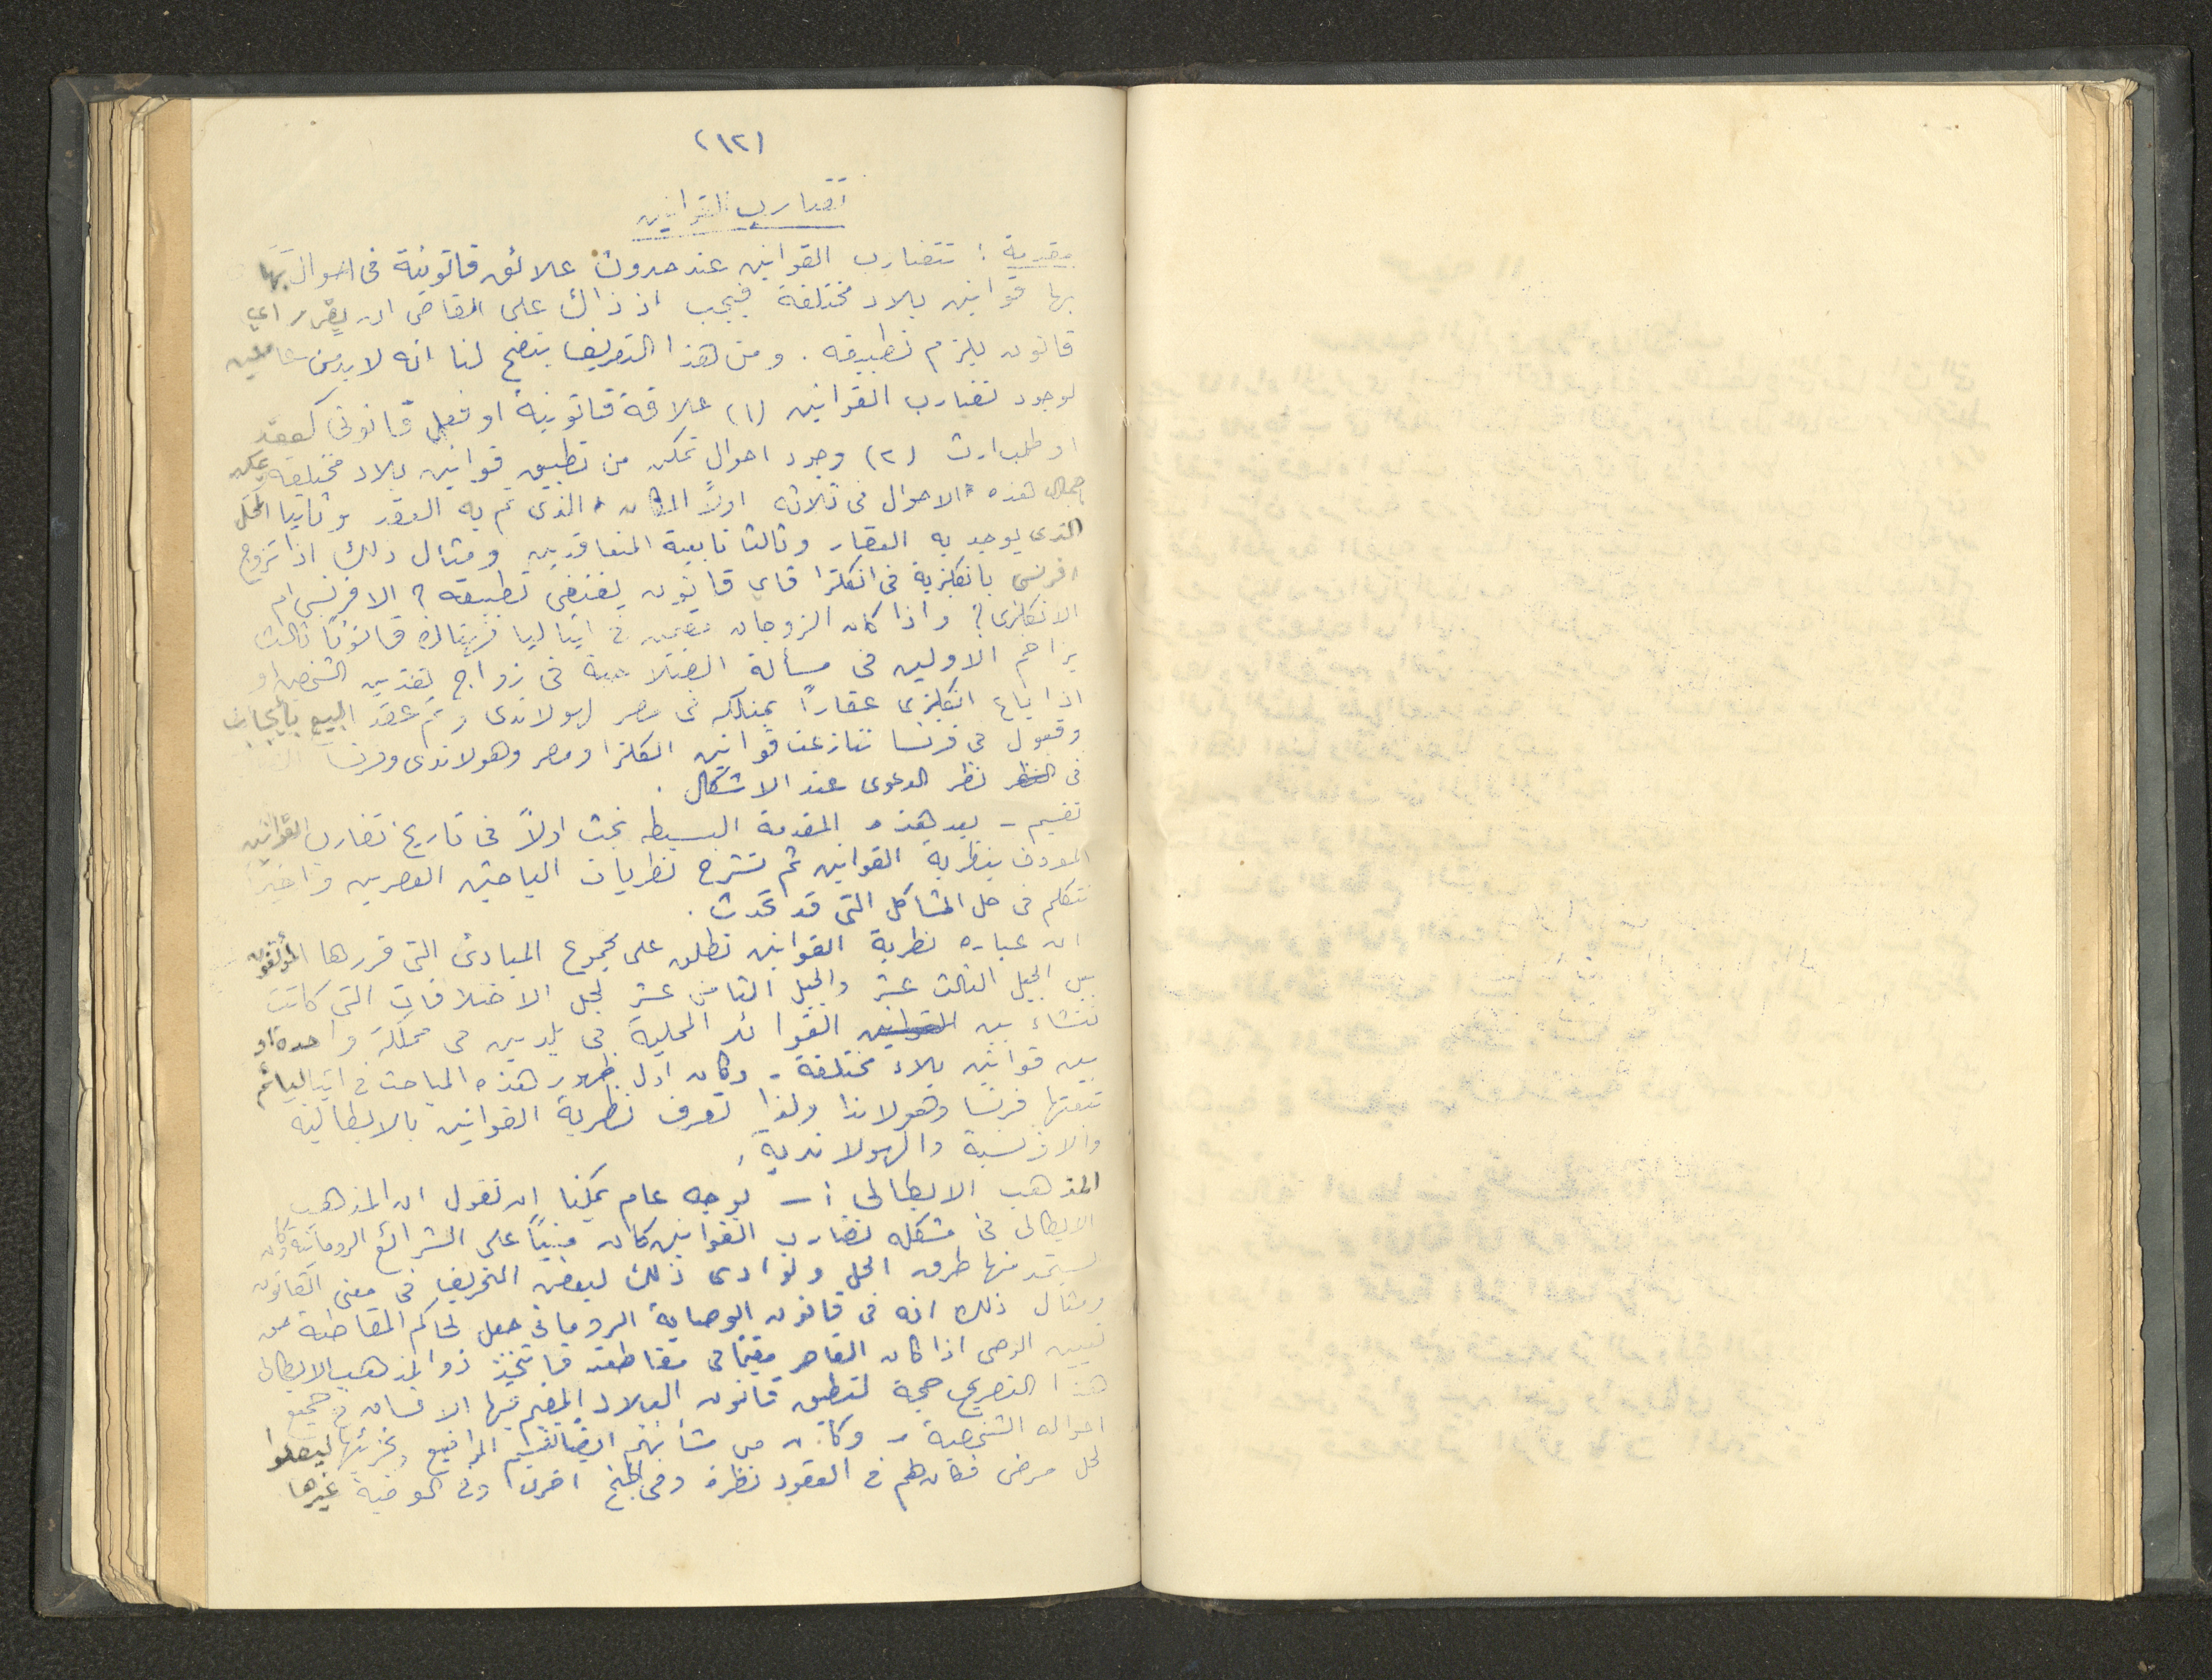 (١٢)
تضارب القوانين
مقدمة : تتضارب القوانين عند حدوث علائق قانونية فى احوال بها
بها قوانين بلاد مختلفة فيجب اذ ذاك على القاضى ان يقرر اى
قانون يلزم تطبيقه . ومن هذا التعريف يتضح لنا انه لا بد من عاملين
لوجود تضارب القوانين (١) علاقة قانونية او فعل قانونى كعقد
او طلب ارث (٢) وجود احوال تمكن من تطبيق قوانين بلاد مختلفة يمكن
اجمال هذه الاحوال فى ثلاثه اولاً المكان الذى تم به العقد وثانيا المحل
الذى يوجد به العقار وثالثا تابعية المتعاقدين ومثال ذلك اذا تزوج
افرنسى بانكلزية فى انكلترا فاى قانون يقتضى تطبيقه ؟ الافرنسى ام
الانكلزى ؟ واذا كان الزوجان مقيمين فى ايتاليا فهناك قانوناً ثالث
يزاحم الاولين فى مسألة فى زواج هذين الشخصين او
اذا باع انكليزى عقاراً يمتلكه فى مصر لهولاندى وتم عقد البيع بأيجاب
وقبول فى فرنسا تنازعت قوانين انكلترا ومصر وهولاندى وفرنسا
فى النظر نظر الدعوى عند الاشكال .
تقسيم - بعد هذه المقدمة البسيطه نبحث اولاً فى تاريخ تضارب القوانين
المعروف بنظرية القوانين ثم نشرح نظريات الباحثين العصرين واخيراً
نتكلم فى حل المشاكل التى قد تحدث .
ان عباره نظرية القوانين تطلق على مجموع المبادئ التى قررها المؤلفون
بين الجيل الثالث عشر والجيل الثامن عشر لحل الاختلافات التى كانت
تنشاء بين القوانين العوائد المحلية فى بلدين فى مملكة واحدة او
بين قوانين بلاد مختلفة - وكان اول ظهور هذه المباحث فى ايتاليا ثم
تبعتها فرنسا وهولاندا ولذا تعرف نظرية القوانين بالايطالية
والافرنسية والهولاندية .
المذهب الايطالى :- بوجه عام يمكننا ان نقول ان المذهب
الايطالى فى مشكله تضارب القوانين كان مبنياً على الشرائع الرومانية وكان
يستمد منها طرق الحل ولو ادى ذلك لبعض التحريف فى معنى القانون
ومثال ذلك انه فى قانون الوصاية الرومانى جعل لحاكم المقاطعة حق
تعيين الوصى اذا كان القاصر مقيما فى مقاطعته فاتخذ ذوا المذهب الايطالى
هذا التصريح حجة لتطبيق قانون البلاد المقيم فيها الانسان فى جميع
احواله الشخصية - وكان من شأنهم ايضا تقسيم المواضيع وتجزئتها ليصلوا
لحل مرضى فكان لهم فى العقود نظرة وفى الجنح اخرى وفى الوصية غيرها